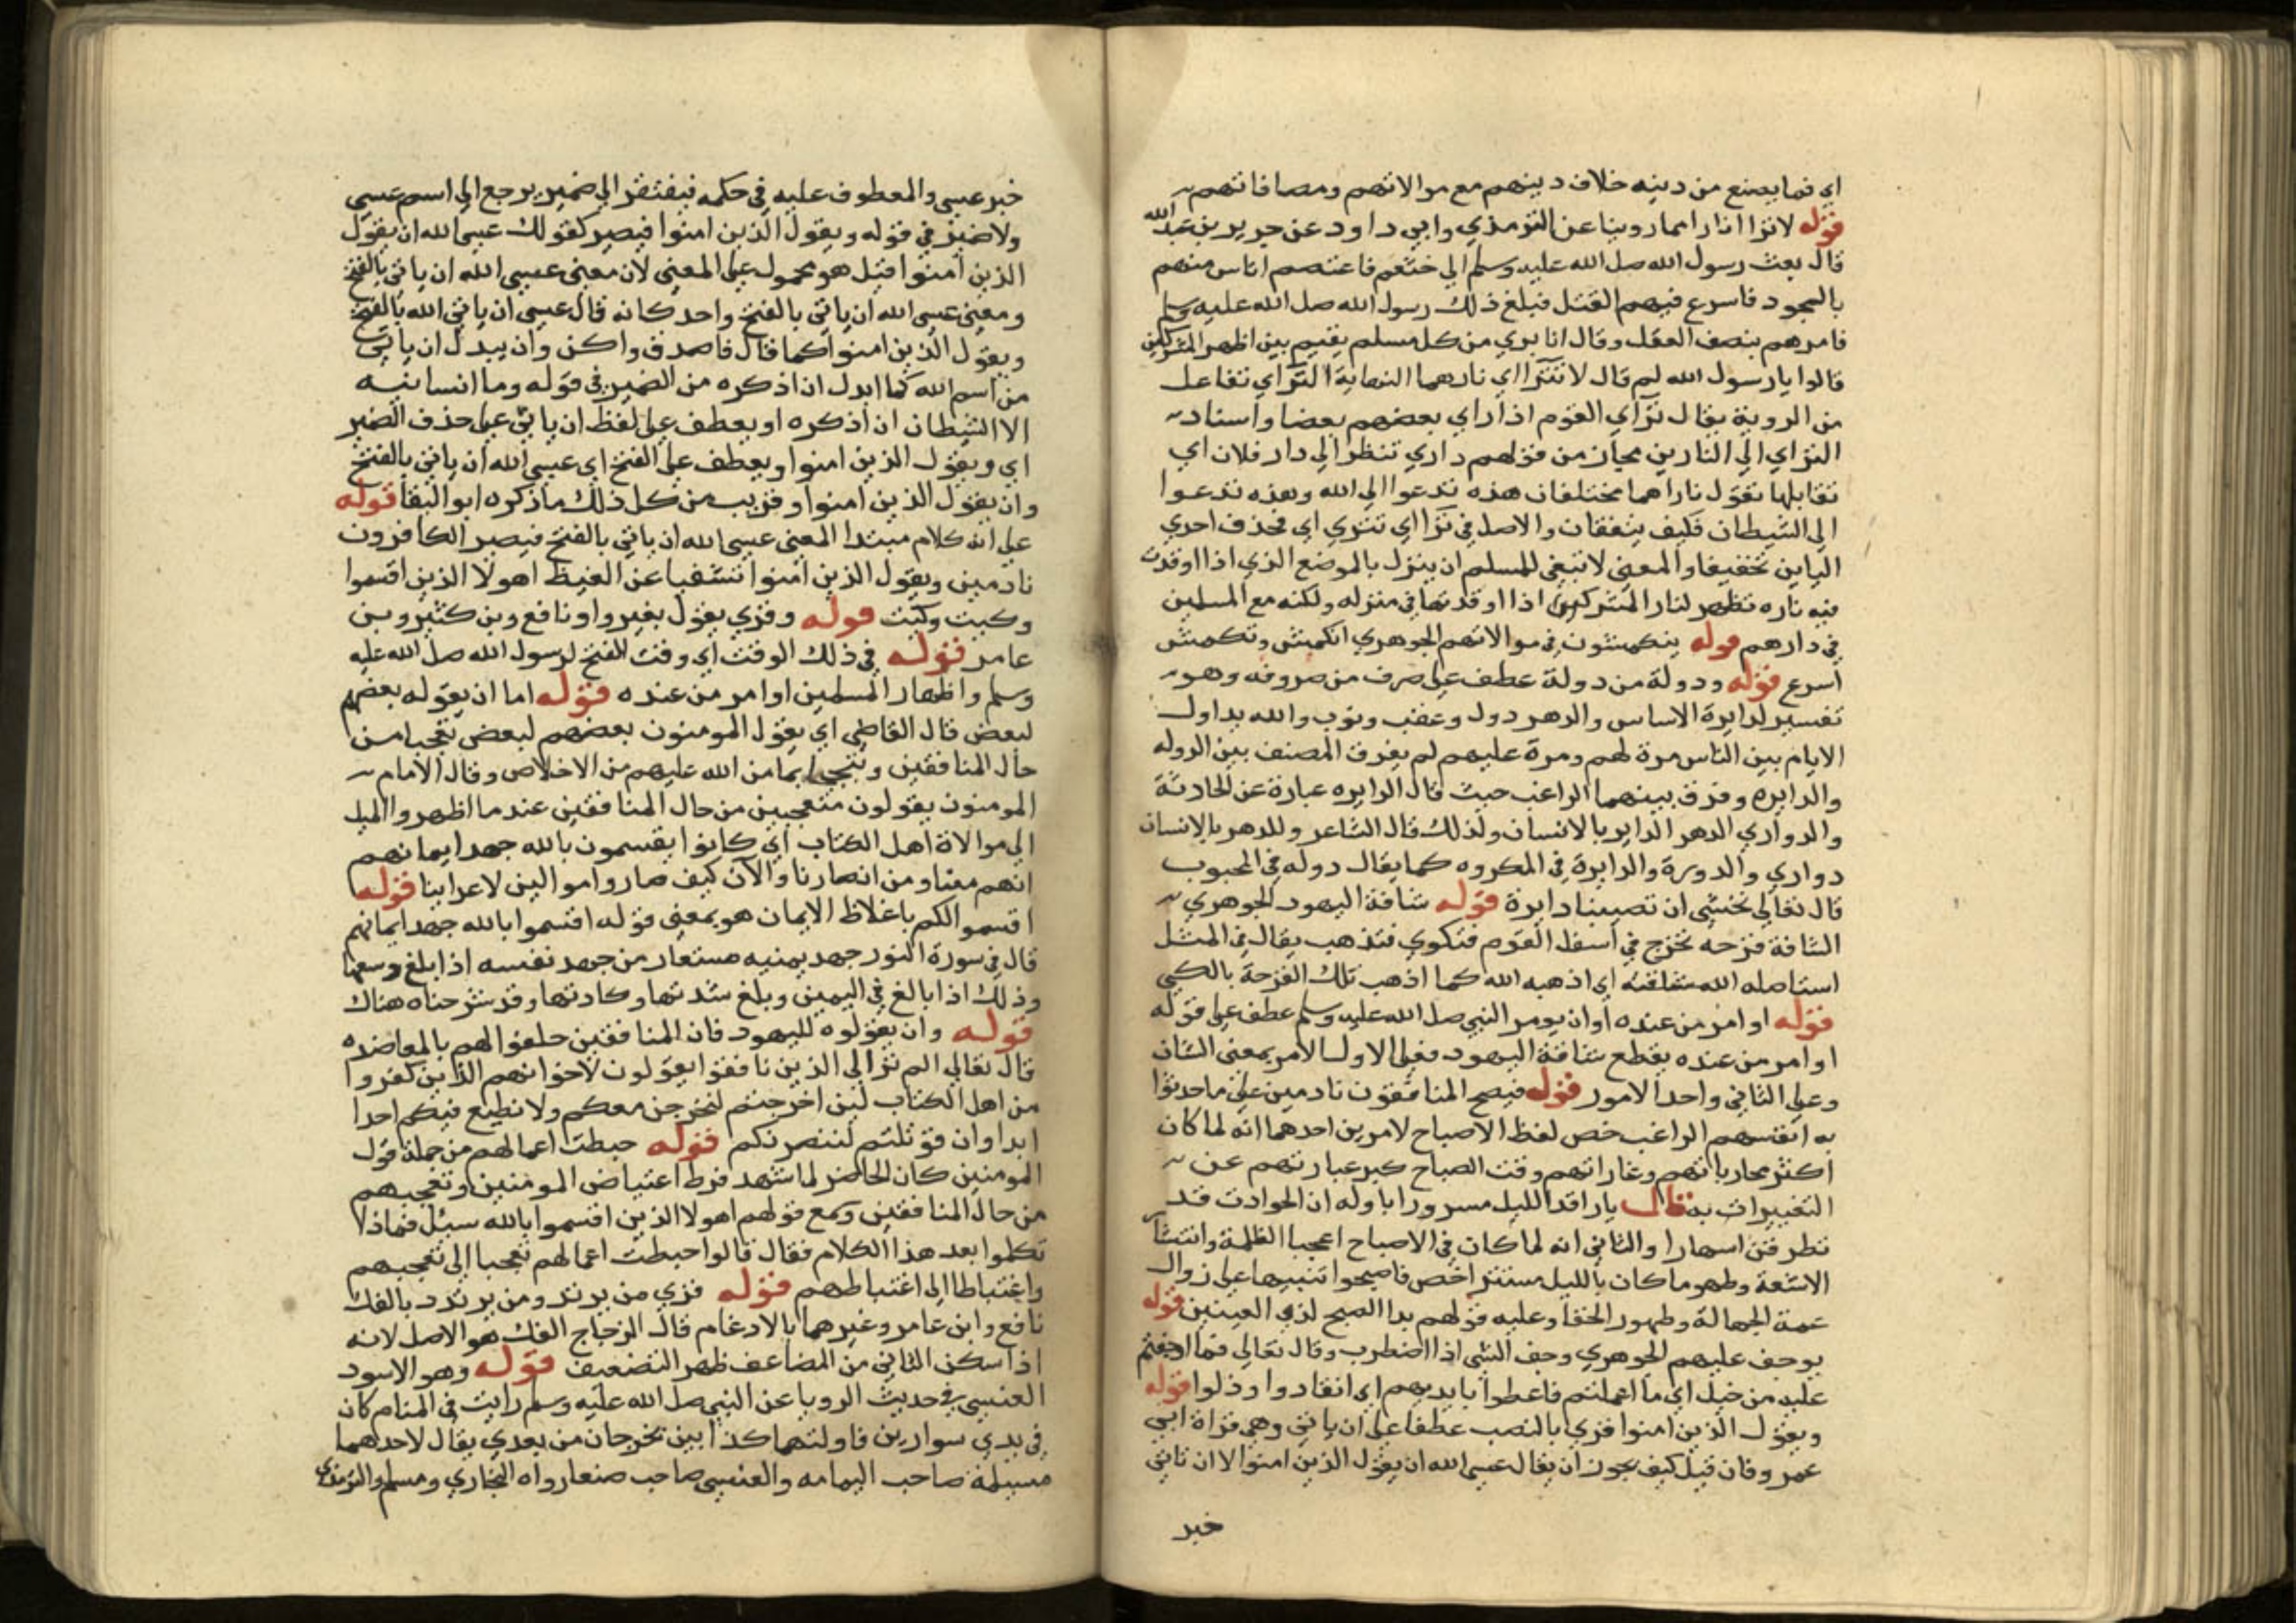 اي فما يصنع من دينه خلاف دينهم مع موالاتهم ومصافاتهم
قوله لا تراا ناراهما روينا عن الترمذي وابي داود عن جرير بن عبدالله
قال بعث رسول الله صلى الله عليه وسلم الي خثعم فاعتصم اناس منهم
بالسجود فاسرع فيهم القتل فبلغ ذلك رسول الله صلى الله عليه وسلم
فامرهم بنصف العقل وقال انا بري من كل مسلم يقيم بين اظهر المشركين
قالوا يا رسول الله لم قال لا تتراا اي نارهما النهاية التراي تفاعل
من الروية يقال تراي القوم اذا راي بعضهم بعضا واسناد
التراي الي النارين مجاز من قولهم داري تنظر الي دار فلان اي
تقابلها تقول ناراهما مختلفان هذه تدعوا الي الله وهذه تدعوا
الي الشيطان فكيف يتفقان والاصل في تراا اي تتري اي فحذف احدي
اليابن تخفيفا والمعني لا تبغي للمسلم ان ينزل بالموضع الذي اذا اوقدت
فيه ناره تظهر لنار المشركين اذا اوقدتها في منزله ولكنه مع المسلمين
في دارهم قوله ينكمشون في موالاتهم الجوهري انكمش وتكمش
اسرع قوله ودولة من دولة عطف علي صرف من صروفه وهو
تفسير لدايرة الاساس والدهر دول وعقب ونوب والله يداول
الايام بين الناس مرة لهم ومرة عليهم لم يفرق المصنف بين الدوله
والدايره وفرق بينهما الراغب حيث قال الدايره عبارة عن الحادثة
والدواري الدهر الداير بالانسان ولذلك قال الشاعر وللدهر بالانسان
دواري والدورة والدايرة في المكروه كما يقال دوله في المحبوب
قال تعالي نخشي ان تصيبنا دايرة قوله شافة اليهود الجوهري
الشافة قرحه تخرج في اسفل القوم فتكوي فتذهب يقال في المثل
استاصله الله شافته اي اذهبه الله كما اذهب تلك القرحة بالكي
قوله او امر من عنده او ان يومر النبي صلى الله عليه وسلم عطف علي قوله
او امر من عنده يقطع شافة اليهود فعلي الاول الامر بمعني الشان
وعلي الثاني واحد الامور قوله فيصبح المنافقون نادمين علي ما حدثوا
به انفسهم الراغب خص لفظ الاصباح لامرين احدهما انه لما كان
اكثر محارباتهم وغاراتهم وقت الصباح كبر عبارتهم عن
التغييرات به قال يا راقد الليل مسرورا باوله ان الحوادث قد
تطرقن اسحارا والثاني انه لما كان في الاصباح اعجبا الظلمة وانتشار
الاشعة وظهور ما كان بالليل مستترا خص فاصبحوا تنبيها علي زوال
عمة الجهالة وظهور الخفا وعليه قولهم بدا الصبح لذي العينين قوله
يوجف عليهم الجوهري وجف الشي اذا اضطرب وقال تعالي فما اوجفتم
عليه من خيل اي ما اعملتم فاعطوا بايديهم اي انقادوا وذلوا قوله
ويقول الذين امنوا قري بالنصب عطفا علي ان ياتي وهي قراة ابي
عمرو فان قيل كيف يجوز ان يقال عسي الله ان يقول الذين امنوا لان ان تاتي
خبر
خبر عسي والمعطوف عليه في حكمه فيفتقر الي ضمير يرجع الي اسم عسي
ولا ضمير في قوله ويقول الذين امنوا فيصير كقولك عسي الله ان يقول
الذين امنوا قيل هو محمول علي المعني لان معني عسي الله ان ياتي بالفتح
ومعني عسي الله ان ياتي بالفتح واحد كانه قال عسي ان ياتي الله بالفتح
ويقول الذين امنوا كما قال فاصدق واكن وان يبدل ان ياتي
من اسم الله كما ابدل ان اذكره من الضمير في قوله وما انسانيه
الا الشيطان ان اذكره او يعطف علي لفظ ان ياتي علي حذف الضمير
اي ويقول الذين امنوا ويعطف علي الفتح اي عسي الله ان ياتي بالفتح
وان يقول الذين امنوا وقريب من كل ذلك ما ذكره ابو البقا قوله
علي انه كلام مبتدا المعني عسي الله ان ياتي بالفتح فيصبر الكافرون
نادمين ويقول الذين امنوا تشفيا عن الغيظ اهولا الذين اقسموا
وكيت وكيت قوله وقري يقول بغير واو نافع وبن كثير وبن
عامر قوله في ذلك الوقت اي وقت الفتح لرسول الله صلى الله عليه
وسلم واظهار المسلمين او امر من عنده قوله اما ان يقوله بعضهم
لبعض قال القاضي اي يقول المومنون بعضهم لبعض تعجبا من
حال المنافقين وتبجحا بما من الله عليهم من الاخلاص وقال الامام
المومنون يقولون متعجبين من حال المنافقين عندما اظهروا الميل
الي موالاة اهل الكتاب اي كانوا يقسمون بالله جهد ايمانهم
انهم معنا ومن انصارنا والآن كيف صاروا موالين لاعداينا قوله
اقسموا لكم باغلاظ الايمان هو بمعني قوله اقسموا بالله جهد ايمانهم
قال في سورة النور جهد يمنيه مستعار من جهد نفسه اذا بلغ وسعها
وذلك اذا بالغ في اليمين وبلغ شدتها وكادتها وقد شرحناه هناك
قوله وان يقولوه لليهود فان المنافقين حلفوا لهم بالمعاضده
قال تعالي الم تر الي الذين نافقوا يقولون لاخوانهم الذين كفروا
من اهل الكتاب لين اخرجتم لنخرجن معكم ولا نطيع فيكم احدا
ابدا وان قوتلتم لننصرنكم قوله حبطت اعمالهم من جملة قول
المومنين كان الحاضر لما شهد فرط اعتباض المومنين وتعجبهم
من حال المنافقين وسمع قولهم اهولا الذين اقسموا بالله سيل فماذا
تكلموا بعد هذا الكلام فقال قالوا حبطت اعمالهم تعجبا الي تعجبهم
واغتباطا الي اغتباطهم قوله قري من يرتد ومن يرتدد بالفك
نافع وابن عامر وغيرهما بالادغام قال الزجاج الفك هو الاصل لانه
اذا سكن الثاني من المضاعف ظهر التضعيف قوله وهو الاسود
العنسي في حديث الرويا عن النبي صلى الله عليه وسلم رايت في المنام كان
في يدي سوارين فاولتهما كذابين تخرجان من بعدي يقال لاحدهما
مسيلمة صاحب اليمامه والعنسي صاحب صنعا رواه البخاري ومسلم والترمذي